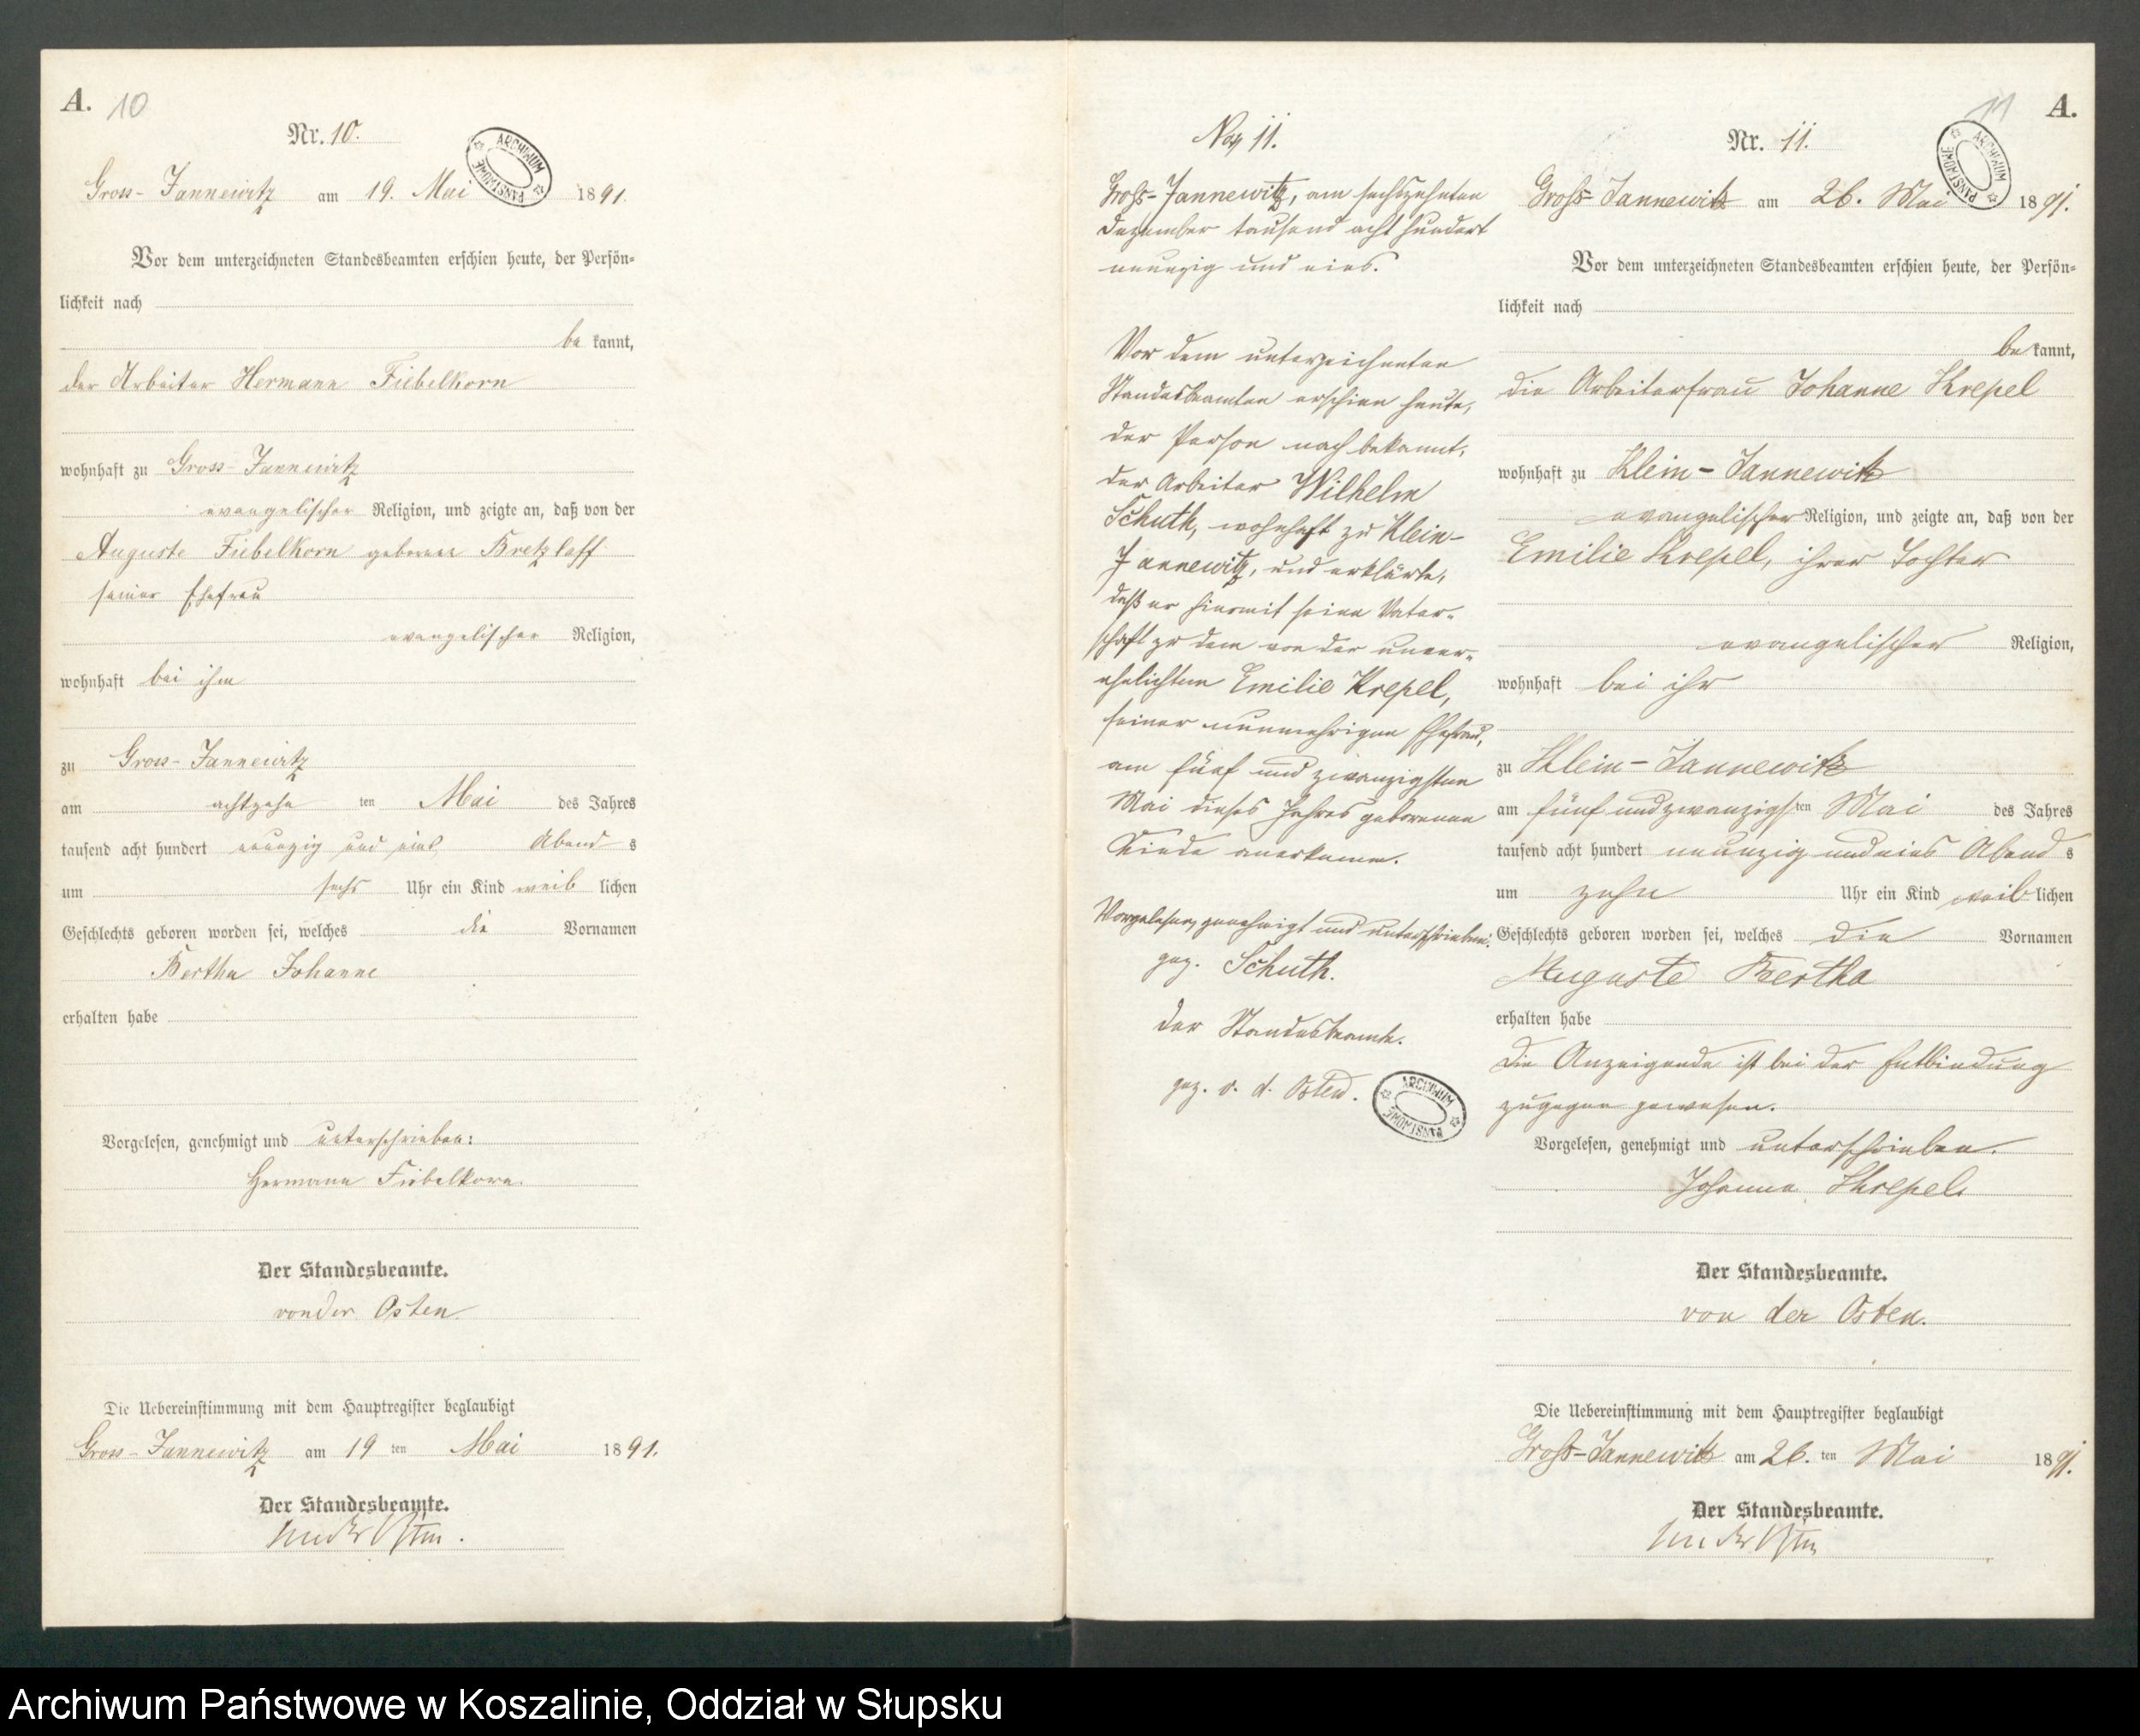 A. 10
Nr. 10.
ARCHIWUM PAŃSTWOWE
Gross-Jannewitz am 19. Mai 1891.
Vor dem unterzeichneten Standesbeamten erschien heute, der Persön-
lichkeit nach
be kannt,
der Arbeiter Hermann Fiebelkorn
wohnhaft zu Gross-Jannewitz
evangelischer Religion, und zeigte an, daß von der
Auguste Fiebelkorn geborene Bretzlaff
seiner Ehefrau
evangelischer Religion,
wohnhaft bei ihm
zu Gross-Jannewitz
am achtzehn ten Mai des Jahres
tausend acht hundert neunzig und eins Abend s
um sechs Uhr ein Kind weib lichen
Geschlechts geboren worden sei, welches die Vornamen
Bertha Johanne
erhalten habe
Vorgelesen, genehmigt und unterschrieben:
Hermann Fiebelkorn.
Der Standesbeamte.
von der Osten
Die Uebereinstimmung mit dem Hauptregister beglaubigt
Gross-Jannewitz am 19 ten Mai 1891.
Der Standesbeamte.
von der Osten.
No 11.
Groß-Jannewitz, am sechszehnten
Dezember tausend acht hundert
neunzig und eins.
Vor dem unterzeichneten
Standesbeamten erschien heute,
der Person nach bekannt,
der Arbeiter Wilhelm
Schuth, wohnhaft zu Klein-
Jannewitz, und erklärte,
daß er hiermit seine Vater-
schaft zu dem von der unver-
ehelichten Emilie Krepel,
seiner nunmehrigen Ehefrau,
am fünf und zwanzigsten
Mai dieses Jahres geborenen
Kinde anerkenne.
Vorgelesen, genehmigt und unterschrieben.
gez. Schuth.
Der Standesbeamte.
gez. v. d. Osten.
ARCHIWUM PAŃSTWOWE
11 A.
Nr. 11.
ARCHIWUM PAŃSTWOWE
Groß-Jannewitz am 26. Mai 1891.
Vor dem unterzeichneten Standesbeamten erschien heute, der Persön-
lichkeit nach
be kannt,
die Arbeiterfrau Johanne Krepel
wohnhaft zu Klein-Jannewitz
evangelischer Religion, und zeigte an, daß von der
Emilie Krepel, ihrer Tochter
evangelischer Religion,
wohnhaft bei ihr
zu Klein-Jannewitz
am fünf und zwanzigs ten Mai des Jahres
tausend acht hundert neunzig und eins Abend s
um zehn Uhr ein Kind weib lichen
Geschlechts geboren worden sei, welches die Vornamen
Auguste Bertha
erhalten habe
Die Anzeigende ist bei der Entbindung
zugegen gewesen.
Vorgelesen, genehmigt und unterschrieben.
Johanne Krepel.
Der Standesbeamte.
von der Osten.
Die Uebereinstimmung mit dem Hauptregister beglaubigt
Groß-Jannewitz am 26. ten Mai 1891.
Der Standesbeamte.
von der Osten
Archiwum Państwowe w Koszalinie, Oddział w Słupsku